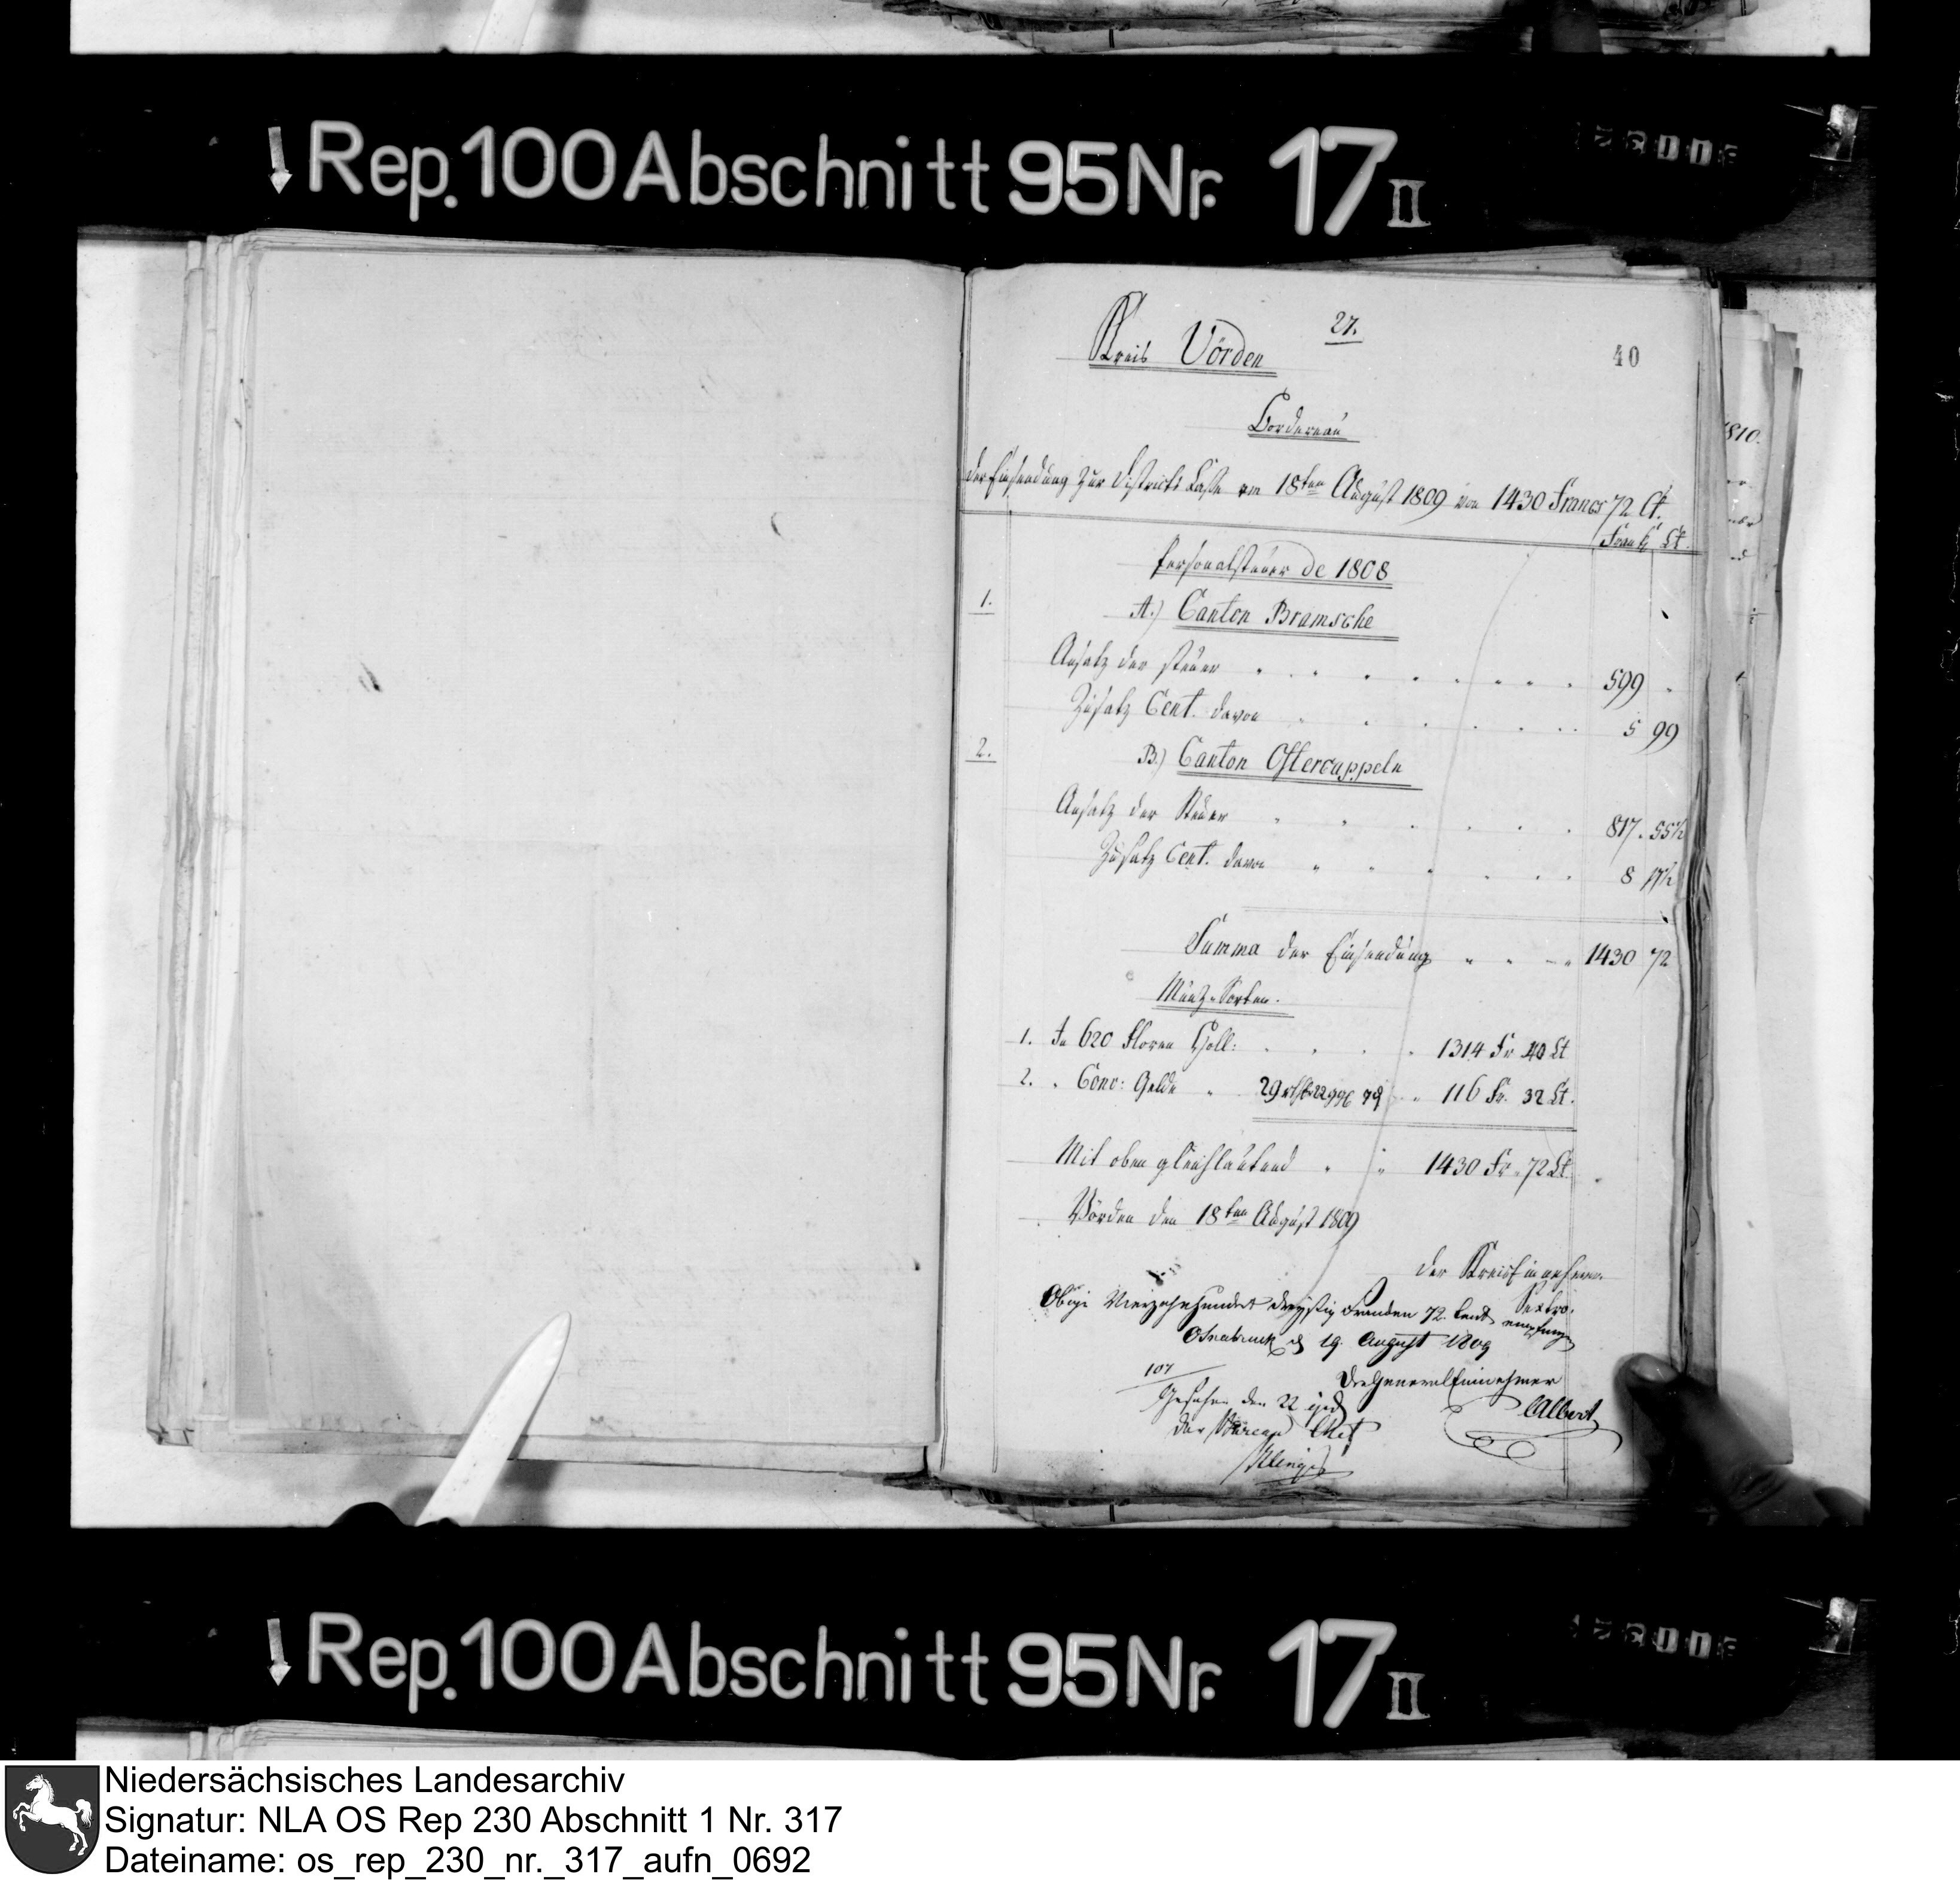 Rep. 100 Abschnitt 95 Nr. 17 II
27.
Kreis Vörden
40
Bordereau
der Einsendung zur Districts Casse vom 18ten August 1809 von 1430 Francs 72 Ct.
Frank Ct.
Personalsteuer de 1808
1.
A.) Canton Bramsche
Ansatz der Steuer 599
Zusatz Cent. davon 5 99
2.
B.) Canton Ostercappeln
Ansatz der Steuer 817. 55½
Zusatz Cent. davon 8 17½
Summa der Einsendung 1430 72
Münz-Sorten.
1. In 620 Floren Holl: 1314 Fr 40 Ct
2. " Conv: Gelde " 29 116 Fr. 32 Ct.
Mit oben gleichlautend 1430 Fr. 72 Ct.
Vörden den 18ten August 1809
der Kreiseinnehmer
Sextro.
Obige Vierzehnhundert dreyssig Franken 72 Cent empfangen
Osnabruck d 19. August 1809
Der General Einnehmer
Albert
107
Gesehen den 22
der Bureau Chef
1810.
Rep. 100 Abschnitt 95 Nr. 17 II
Niedersächsisches Landesarchiv
Signatur: NLA OS Rep 230 Abschnitt 1 Nr. 317
Dateiname: os_rep_230_nr._317_aufn_0692